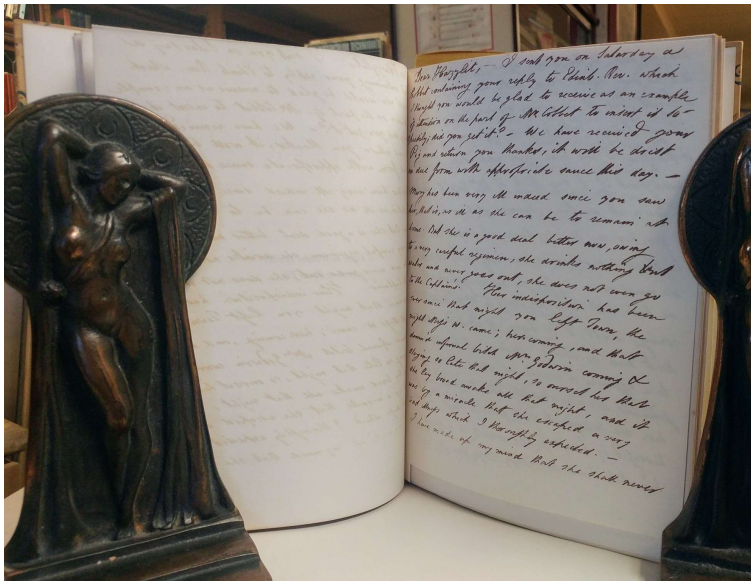 Dear Hazzlet, — I sent you on Saturday a
Cobbet containing your reply to Edinb. Rev. which
I thought you would be glad to receive as an example
of attention on the part of Mr Cobbet to insert it so
speedily; did you get it? — We have received your
Pig and return you thanks; it will be drest
in due form with appropriate sauce this day. —
Mary has been very ill indeed since you saw
her, that is, as ill as she can be to remain at
home. But she is a good deal better now, owing
to a very careful regimen, she drinks nothing but
water and never goes out, she does not even go
to the Captain's. Her indisposition has been
ever since that night you left Town, the
night Miss W. came; her coming, and that
damned infernal bitch Mrs Godwin coming &
staying so late that night, so overset her that
she lay broad awake all that night, and it
was by a miracle that she escaped a very
bad illness which I thoroughly expected. —
I have made up my mind that she shall never